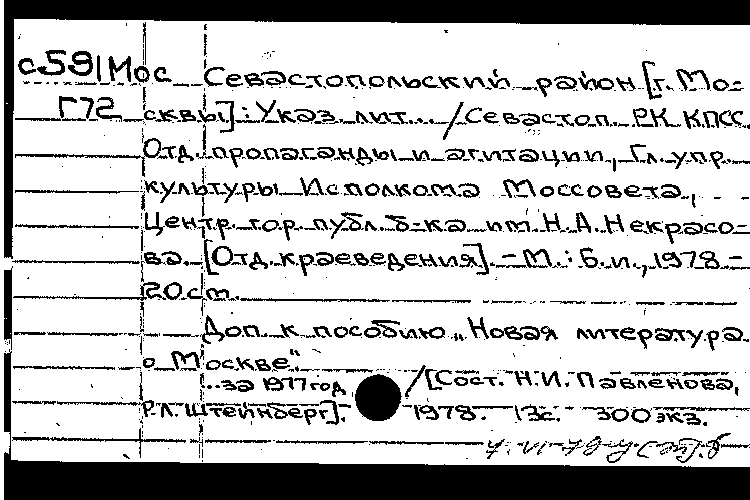 с591Мос Севастопольский район [г. Мо-
Г72 сквы]: Указ. лит... / Севастоп. РК КПСС.
Отд. пропаганды и агитации, Гл. упр.
культуры Исполкома Моссовета,
Центр. гор. публ. б-ка им. Н.А. Некрасо-
ва. [Отд. краеведения]. - М.: Б.и., 1978 -
20 см.
Доп. к пособию „Новая литература
о Москве".
...за 1977 год / [Сост. Н.И. Павленова,
Р.Л. Штейнберг]. 1978. 13с. 300 экз.